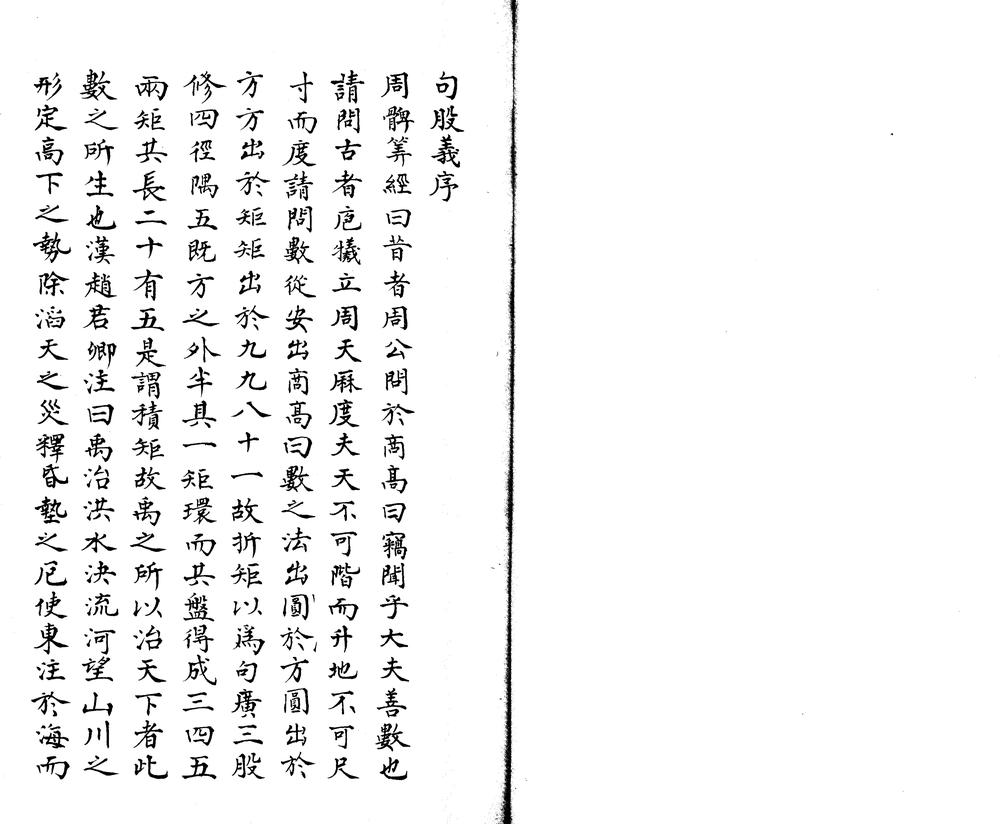 句股義序
周髀筭經曰昔者周公問於商高曰竊聞乎大夫善數也
請問古者庖犧立周天厤度夫天不可階而升地不可尺
寸而度請問數從安出商高曰數之法出圓於方圓出於
方方出於矩矩出於九九八十一故折矩以為句廣三股
修四徑隅五既方之外半其一矩環而共盤得成三四五
兩矩共長二十有五是謂積矩故禹之所以治天下者此
數之所生也漢趙君卿注曰禹治洪水決流河望山川之
形定高下之勢除滔天之災釋昏墊之厄使東注於海而